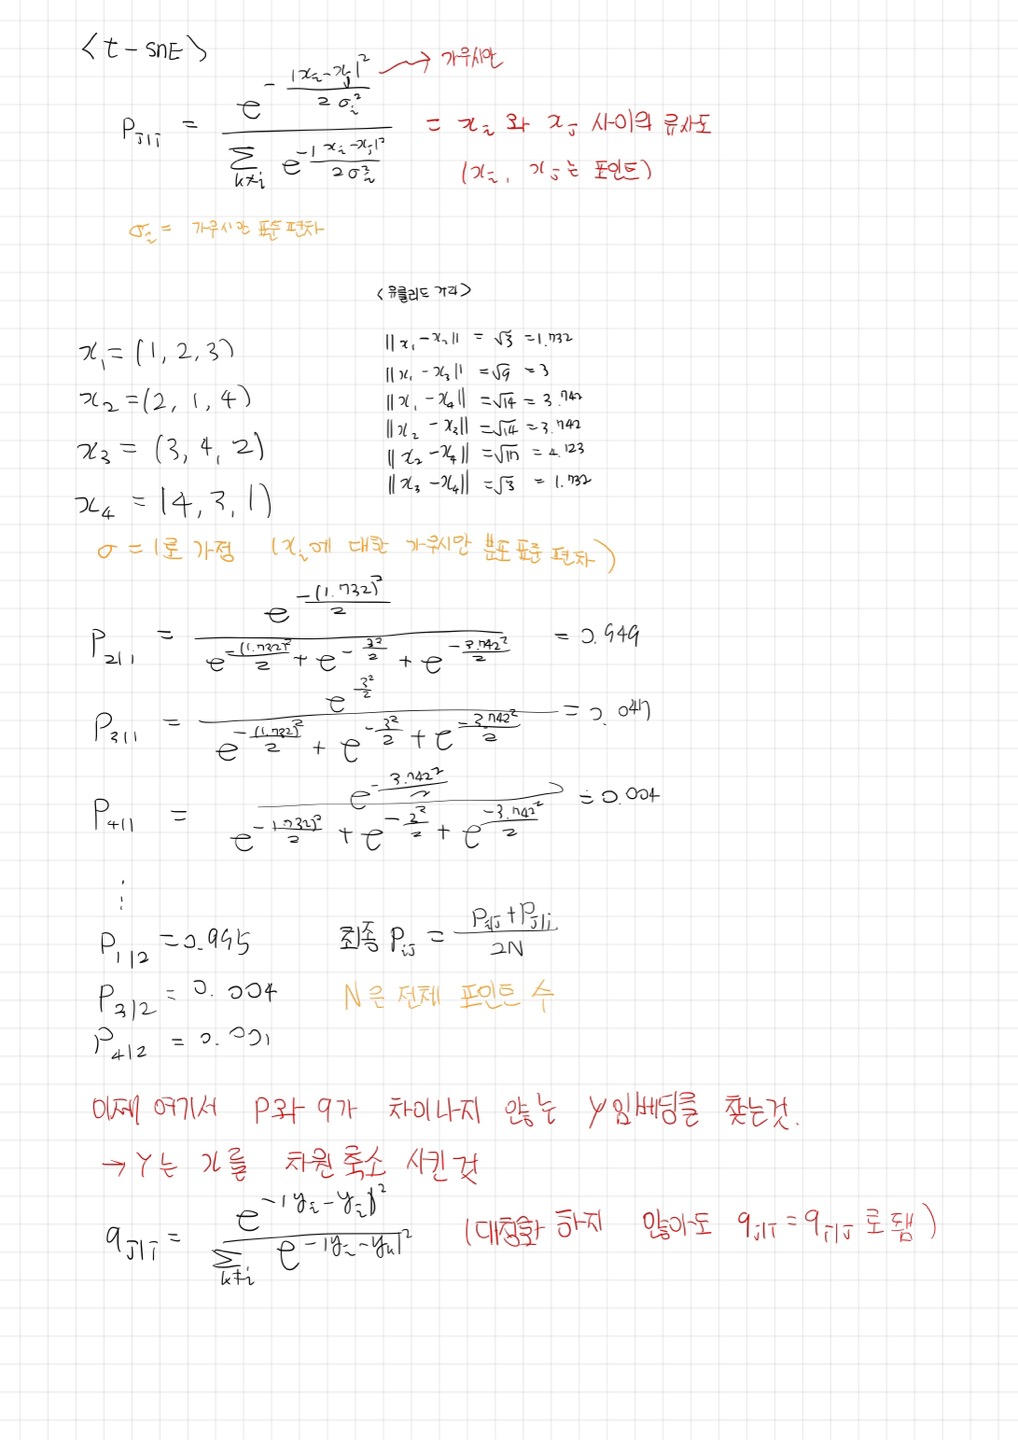 <t-SNE>
P_{j|i} = e^{-|x_i-x_j|^2 / 2σ_i^2} / Σ_{k≠i} e^{-|x_i-x_j|^2 / 2σ_i^2} → 가우시안
= x_i 와 x_j 사이의 유사도
(x_i, x_j는 포인트)
σ_i = 가우시안 표준편차
<유클리드 거리>
x_1 = (1, 2, 3)
x_2 = (2, 1, 4)
x_3 = (3, 4, 2)
x_4 = (4, 3, 1)
||x_1 - x_2|| = √3 = 1.732
||x_1 - x_3|| = √9 = 3
||x_1 - x_4|| = √14 = 3.742
||x_2 - x_3|| = √14 = 3.742
||x_2 - x_4|| = √17 = 4.123
||x_3 - x_4|| = √3 = 1.732
σ = 1로 가정 (x_i에 대한 가우시안 분포 표준 편차)
P_{2|1} = e^{-(1.732)^2/2} / e^{-(1.732)^2/2} + e^{-3^2/2} + e^{-3.742^2/2} = 0.949
P_{3|1} = e^{-3^2/2} / e^{-(1.732)^2/2} + e^{-3^2/2} + e^{-3.742^2/2} = 0.047
P_{4|1} = e^{-3.742^2/2} / e^{-(1.732)^2/2} + e^{-3^2/2} + e^{-3.742^2/2} = 0.004
⋮
P_{1|2} = 0.995
P_{3|2} = 0.004
P_{4|2} = 0.001
최종 P_{ij} = P_{i|j} + P_{j|i} / 2N
N은 전체 포인트 수
이제 여기서 P와 q가 차이나지 않는 Y임베딩을 찾는것.
→ Y는 X를 차원축소 시킨것
q_{j|i} = e^{-|y_i-y_j|^2} / Σ_{k≠i} e^{-|y_i-y_k|^2} (대칭화 하지 않아도 q_{j|i} = q_{i|j} 로 됌)